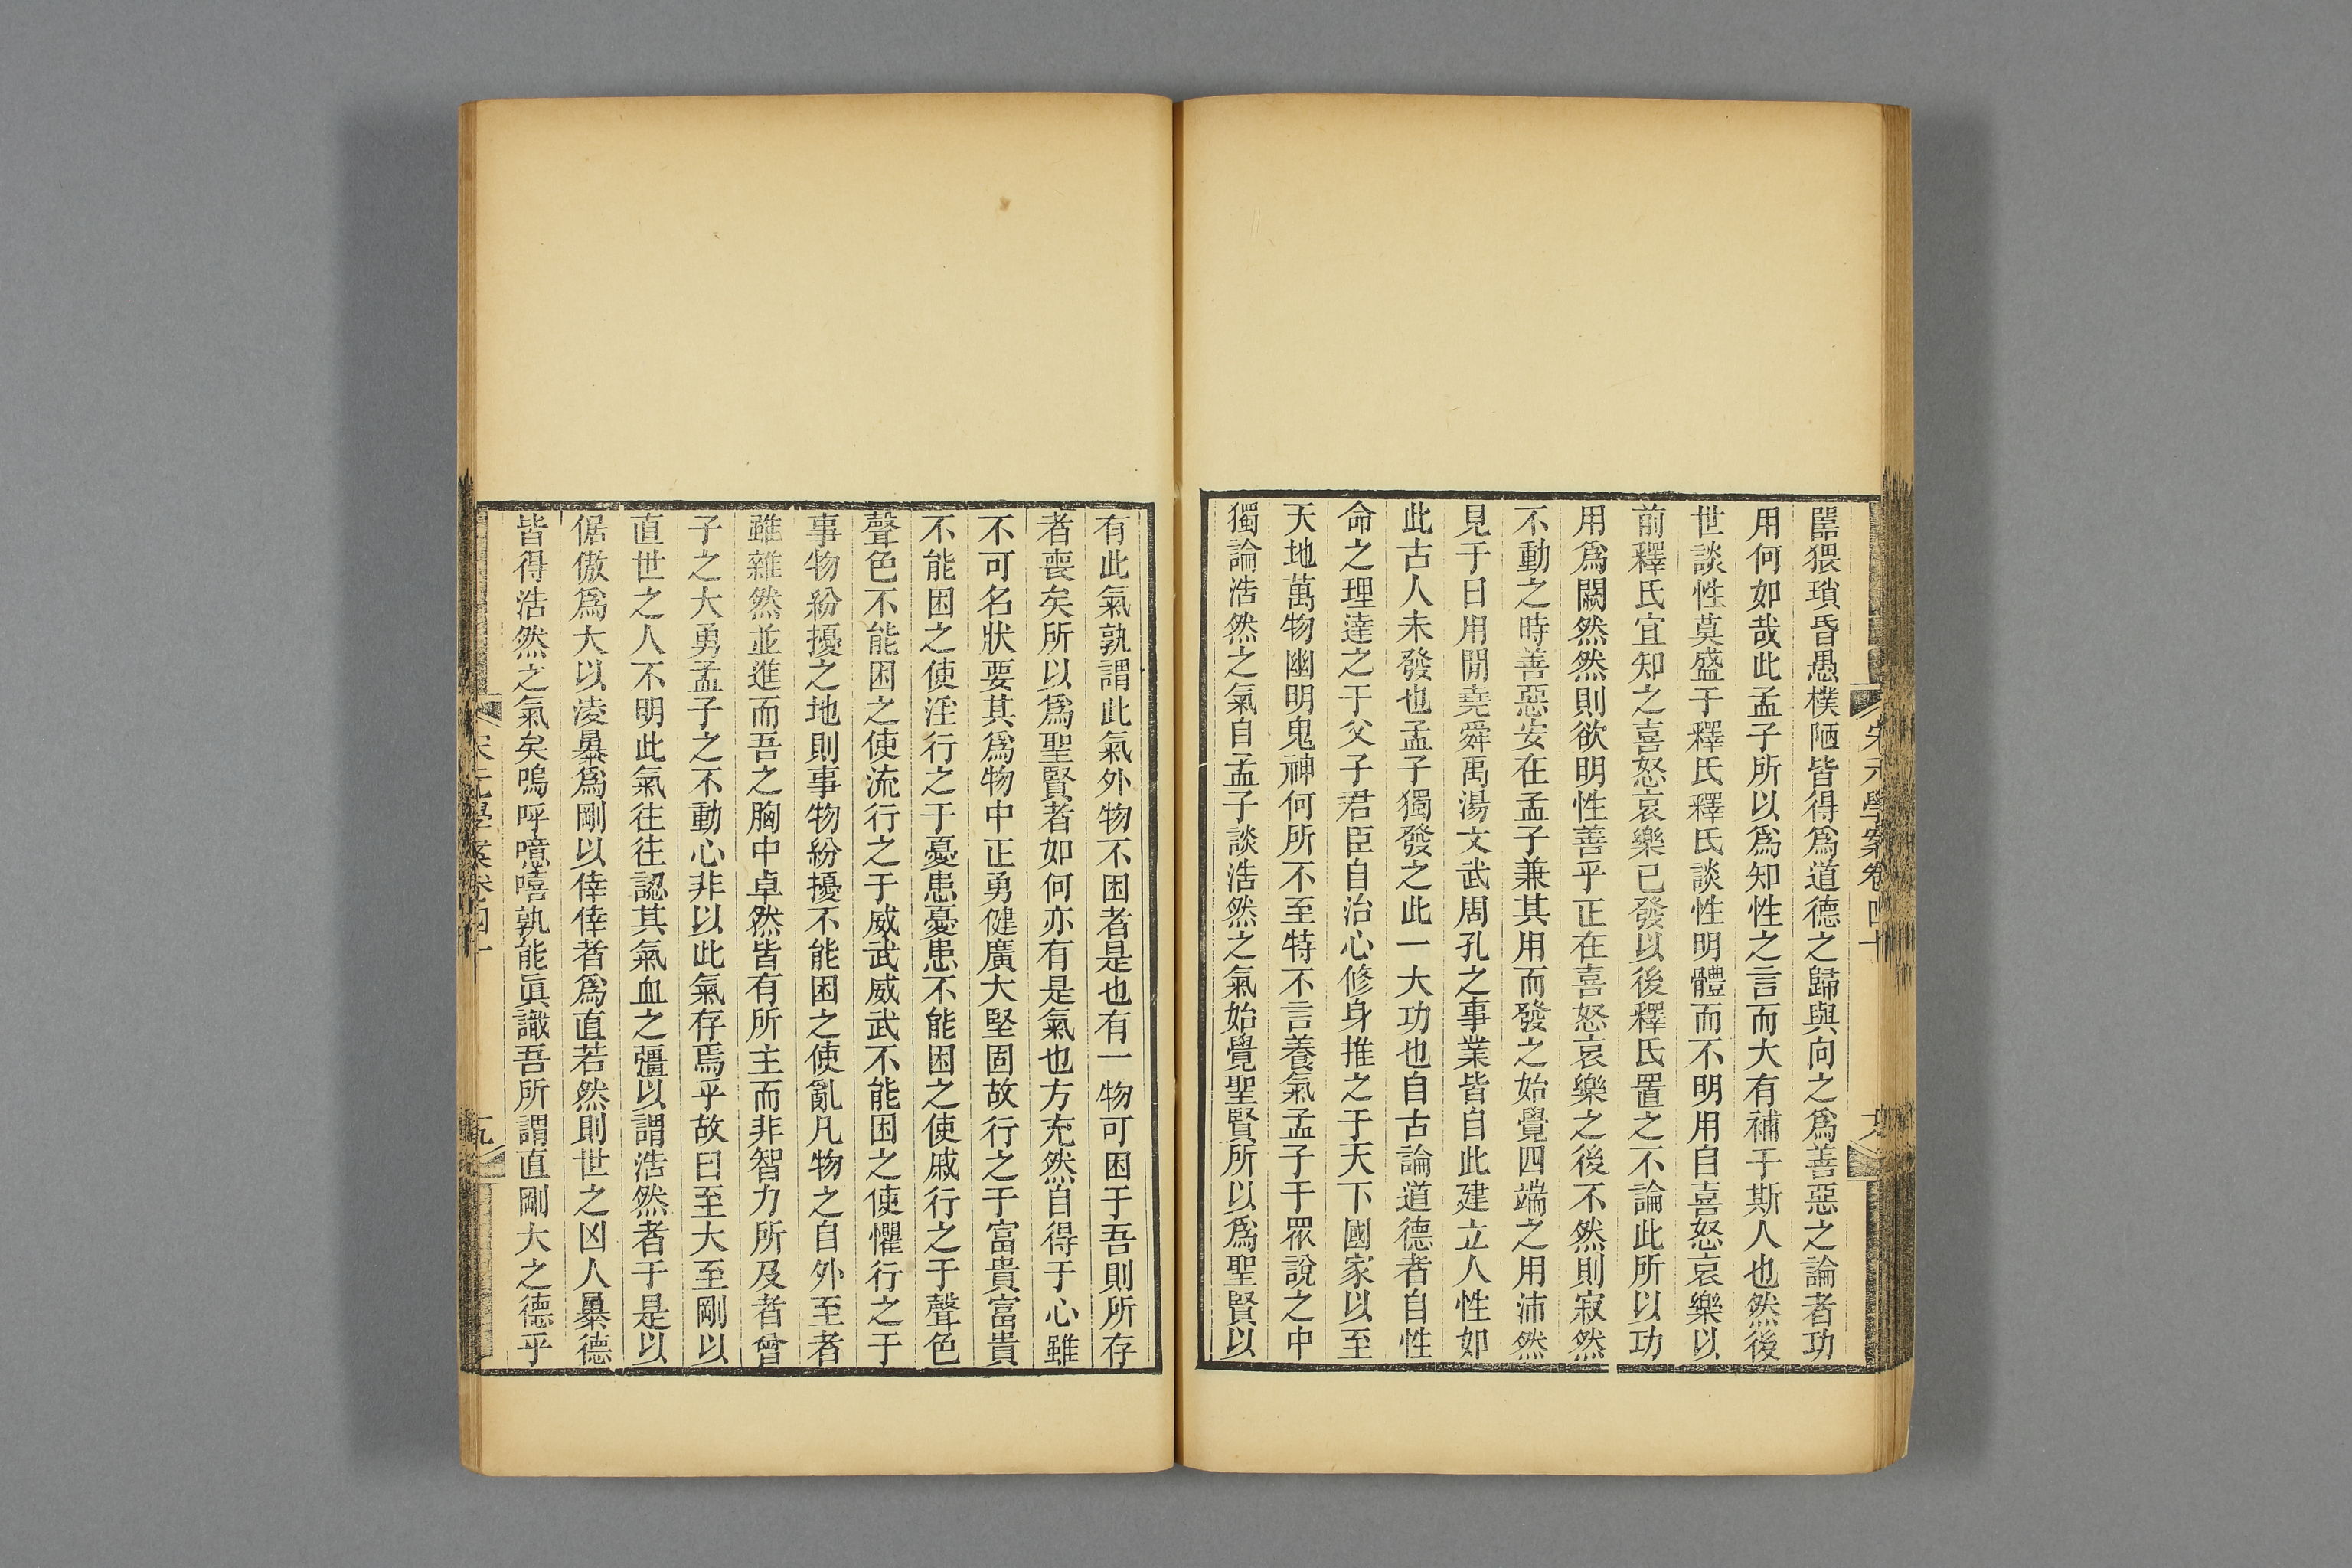 宋元學案卷四十
嚚猥瑣昏愚樸陋皆得爲道德之歸與向之爲善惡之論者功
用何如哉此孟子所以爲知性之言而大有補于斯人也然後
世談性莫盛于釋氏釋氏談性明體而不明用自喜怒哀樂以
前釋氏宜知之喜怒哀樂已發以後釋氏置之不論此所以功
用爲闕然然則欲明性善乎正在喜怒哀樂之後不然則寂然
不動之時善惡安在孟子兼其用而發之始覺四端之用沛然
見于日用閒堯舜禹湯文武周孔之事業皆自此建立人性如
此古人未發也孟子獨發之此一大功也自古論道德者自性
命之理達之于父子君臣自治心修身推之于天下國家以至
天地萬物幽明鬼神何所不至特不言養氣孟子于眾說之中
獨論浩然之氣自孟子談浩然之氣始覺聖賢所以爲聖賢以
有此氣孰謂此氣外物不困者是也有一物可困于吾則所存
者喪矣所以爲聖賢者如何亦有是氣也方充然自得于心雖
不可名狀要其爲物中正勇健廣大堅固故行之于富貴富貴
不能困之使淫行之于憂患憂患不能困之使戚行之于聲色
聲色不能困之使流行之于威武威武不能困之使懼行之于
事物紛擾之地則事物紛擾不能困之使亂凡物之自外至者
雖雜然並進而吾之胸中卓然皆有所主而非智力所及者曾
子之大勇孟子之不動心非以此氣存焉乎故曰至大至剛以
直世之人不明此氣往往認其氣血之彊以謂浩然者于是以
倨傲爲大以凌暴爲剛以倖倖者爲直若然則世之凶人暴德
皆得浩然之氣矣嗚呼噫嘻孰能眞識吾所謂直剛大之德乎
宋元學案卷四十